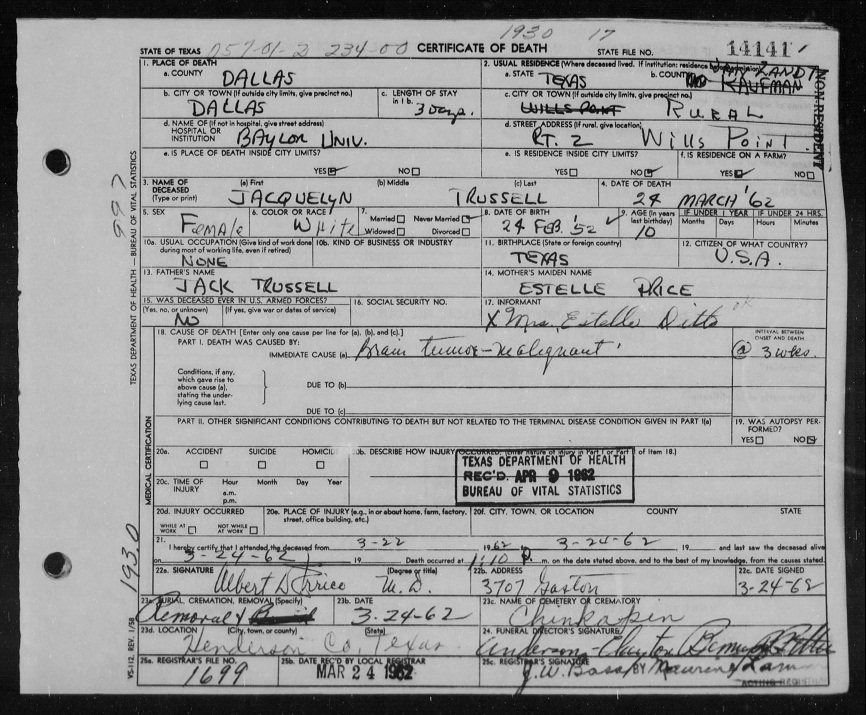 1930 17
STATE OF TEXAS 057-01-2 234-00 CERTIFICATE OF DEATH STATE FILE NO. 14141
1. PLACE OF DEATH
a. COUNTY DALLAS
2. USUAL RESIDENCE (Where deceased lived. If institution: residence before admission)
a. STATE TEXAS b. COUNTY VAN ZANDT KAUFMAN
NON-RESIDENT
b. CITY OR TOWN (If outside city limits, give precinct no.) DALLAS
c. LENGTH OF STAY in 1 b. 3 Days.
c. CITY OR TOWN (If outside city limits, give precinct no.) WILLS POINT RURAL
d. NAME OF (If not in hospital, give street address) HOSPITAL OR INSTITUTION BAYLOR UNIV.
d. STREET ADDRESS (If rural, give location) RT. 2 WILLS POINT.
e. IS PLACE OF DEATH INSIDE CITY LIMITS? YES NO
e. IS RESIDENCE INSIDE CITY LIMITS? YES NO
f. IS RESIDENCE ON A FARM? YES NO
3. NAME OF DECEASED (Type or print) (a) First (b) Middle (c) Last
JACQUELYN TRUSSELL
4. DATE OF DEATH 24 MARCH '62
5. SEX FEMALE
6. COLOR OR RACE WHITE
7. Married Never Married Widowed Divorced
8. DATE OF BIRTH 24 FEB. '52
9. AGE (In years last birthday) 10
IF UNDER 1 YEAR Months Days
IF UNDER 24 HRS. Hours Minutes
10a. USUAL OCCUPATION (Give kind of work done during most of working life, even if retired) NONE
10b. KIND OF BUSINESS OR INDUSTRY
11. BIRTHPLACE (State or foreign country) TEXAS
12. CITIZEN OF WHAT COUNTRY? U.S.A.
13. FATHER'S NAME JACK TRUSSELL
14. MOTHER'S MAIDEN NAME ESTELLE PRICE
15. WAS DECEASED EVER IN U.S. ARMED FORCES? (Yes, no, or unknown) (If yes, give war or dates of service) NO
16. SOCIAL SECURITY NO.
17. INFORMANT X Mrs. Estelle Ditto
18. CAUSE OF DEATH [Enter only one cause per line for (a), (b), and (c).]
PART I. DEATH WAS CAUSED BY:
IMMEDIATE CAUSE (a) Brain tumor - malignant
INTERVAL BETWEEN ONSET AND DEATH
@ 3 wks.
Conditions, if any, which gave rise to above cause (a), stating the underlying cause last.
DUE TO (b)
DUE TO (c)
PART II. OTHER SIGNIFICANT CONDITIONS CONTRIBUTING TO DEATH BUT NOT RELATED TO THE TERMINAL DISEASE CONDITION GIVEN IN PART I(a)
19. WAS AUTOPSY PERFORMED? YES NO
20a. ACCIDENT SUICIDE HOMICIDE
20b. DESCRIBE HOW INJURY OCCURRED. (Enter nature of injury in Part I or Part II of item 18.)
TEXAS DEPARTMENT OF HEALTH
REC'D. APR 9 1962
BUREAU OF VITAL STATISTICS
20c. TIME OF INJURY Hour Month Day Year
a.m.
p.m.
20d. INJURY OCCURRED WHILE AT WORK NOT WHILE AT WORK
20e. PLACE OF INJURY (e.g., in or about home, farm, factory, street, office building, etc.)
20f. CITY, TOWN, OR LOCATION COUNTY STATE
21. I hereby certify that I attended the deceased from 3-22 1962 3-24-62 19 and last saw the deceased alive
on 3-24-62 19 Death occurred at 1:10 P. m. on the date stated above, and to the best of my knowledge, from the causes stated.
22a. SIGNATURE (Degree or title) Albert D'Errico M.D.
22b. ADDRESS 3707 Gaston
22c. DATE SIGNED 3-24-62
23a. BURIAL, CREMATION, REMOVAL (Specify) Removal
23b. DATE 3-24-62
23c. NAME OF CEMETERY OR CREMATORY Chinkapin
23d. LOCATION (City, town, or county) (State) Henderson Co, Texas
24. FUNERAL DIRECTOR'S SIGNATURE Anderson-Clayton
25a. REGISTRAR'S FILE NO. 1699
25b. DATE REC'D BY LOCAL REGISTRAR MAR 24 1962
25c. REGISTRAR'S SIGNATURE J.W. Bass BY
ACTING REGISTRAR
TEXAS DEPARTMENT OF HEALTH — BUREAU OF VITAL STATISTICS
MEDICAL CERTIFICATION
VS-112, REV. 1/58
997
1930